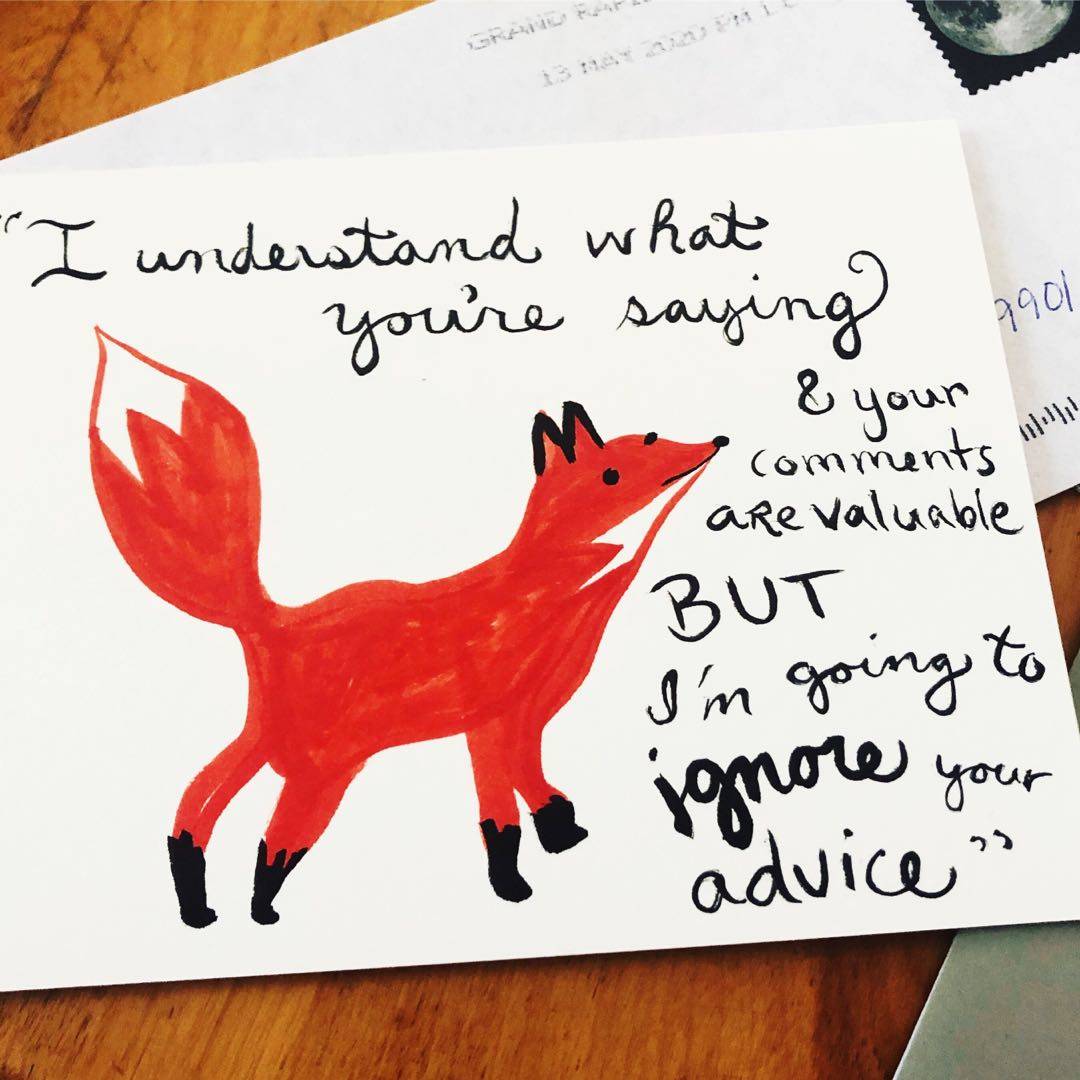 GRAND RAPI
13 MAY 2020 PM L
"I understand what
you're saying
& your
comments
are valuable
BUT
I'm going to
ignore your
advice"
9901